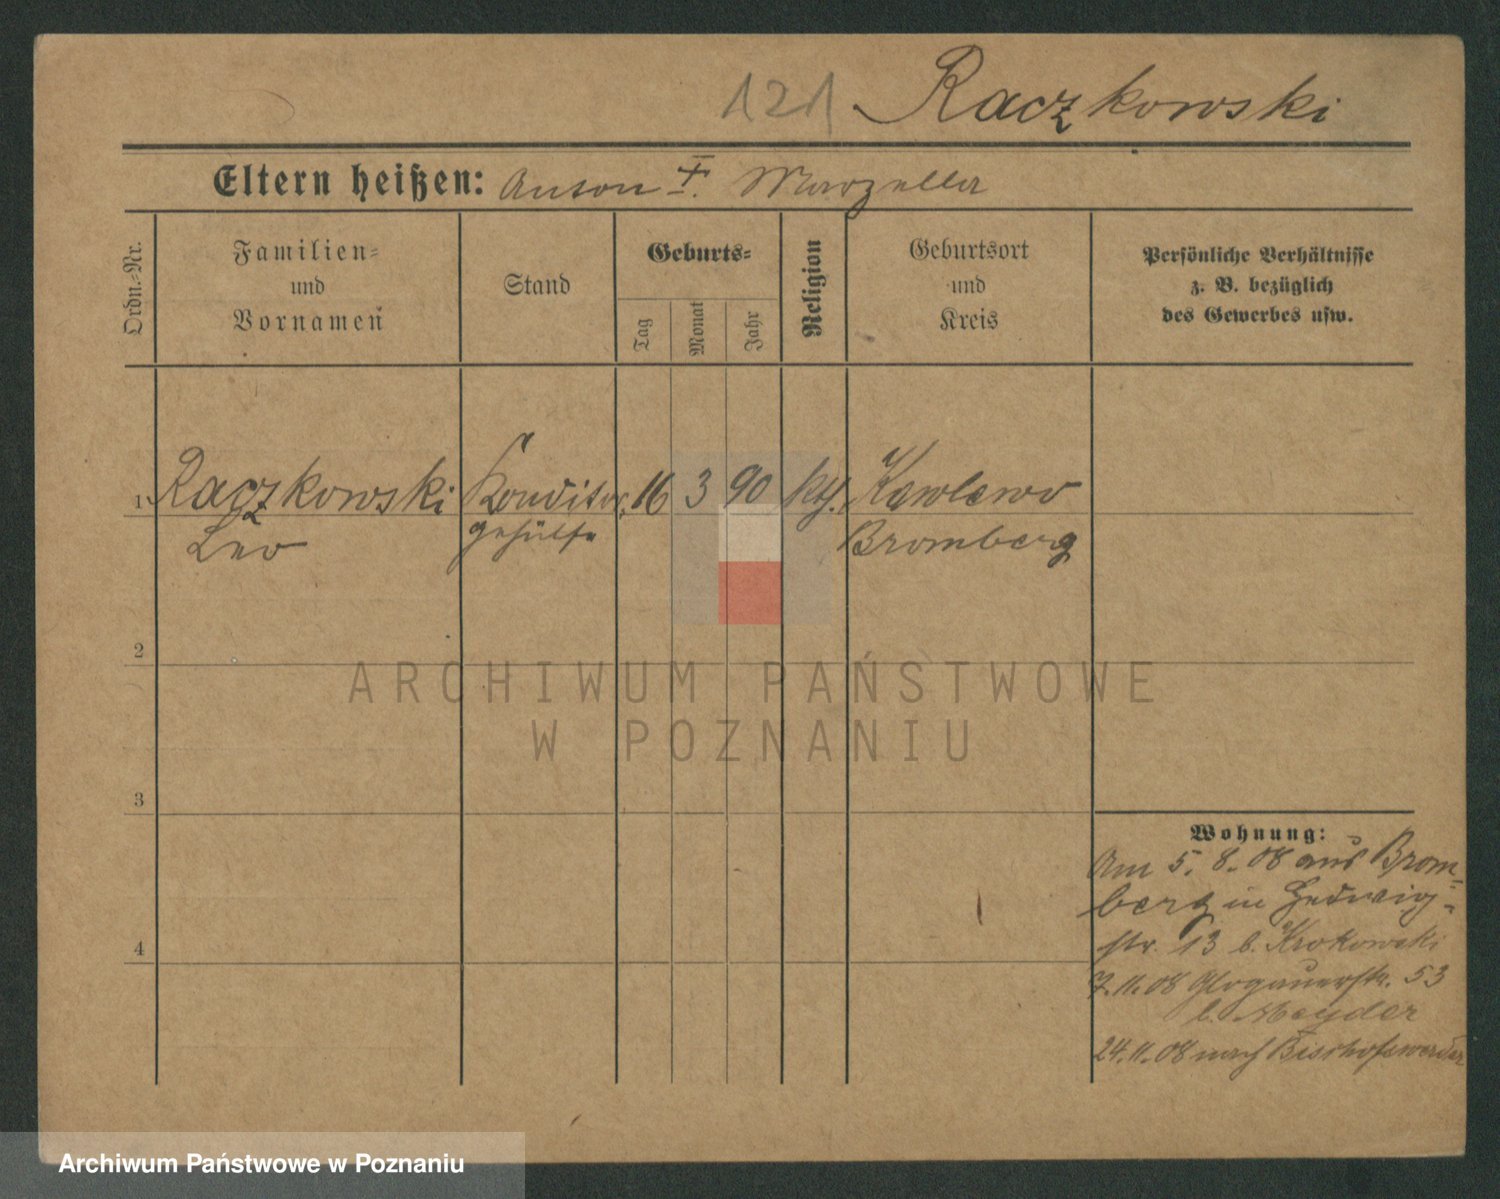 121 Raczkowski
Eltern heißen: Anton †. Marzella
Ordn.-Nr.
Familien-
und
Vornamen
Stand
Geburts-
Tag
Monat
Jahr
Religion
Geburtsort
und
Kreis
Persönliche Verhältnisse
z. B. bezüglich
des Gewerbes usw.
1 Raczkowski Konditor- 16 3 90 kth. 
Leo gehülfe Bromberg
2
3
4
Wohnung:
Am 5. 8. 08 aus Brom-
berg in Hedwig-
str. 13 b. Krokowski
7.11.08 Glogauerstr. 53
b. Meyder
24.11.08 nach Bischofswerder
ARCHIWUM PAŃSTWOWE
W POZNANIU
Archiwum Państwowe w Poznaniu